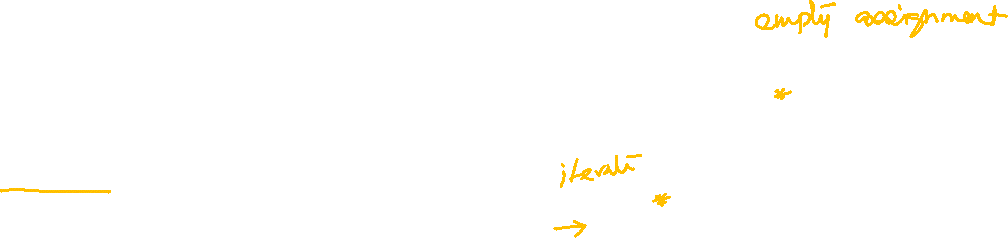 empty assignment
*
iterati
*
→